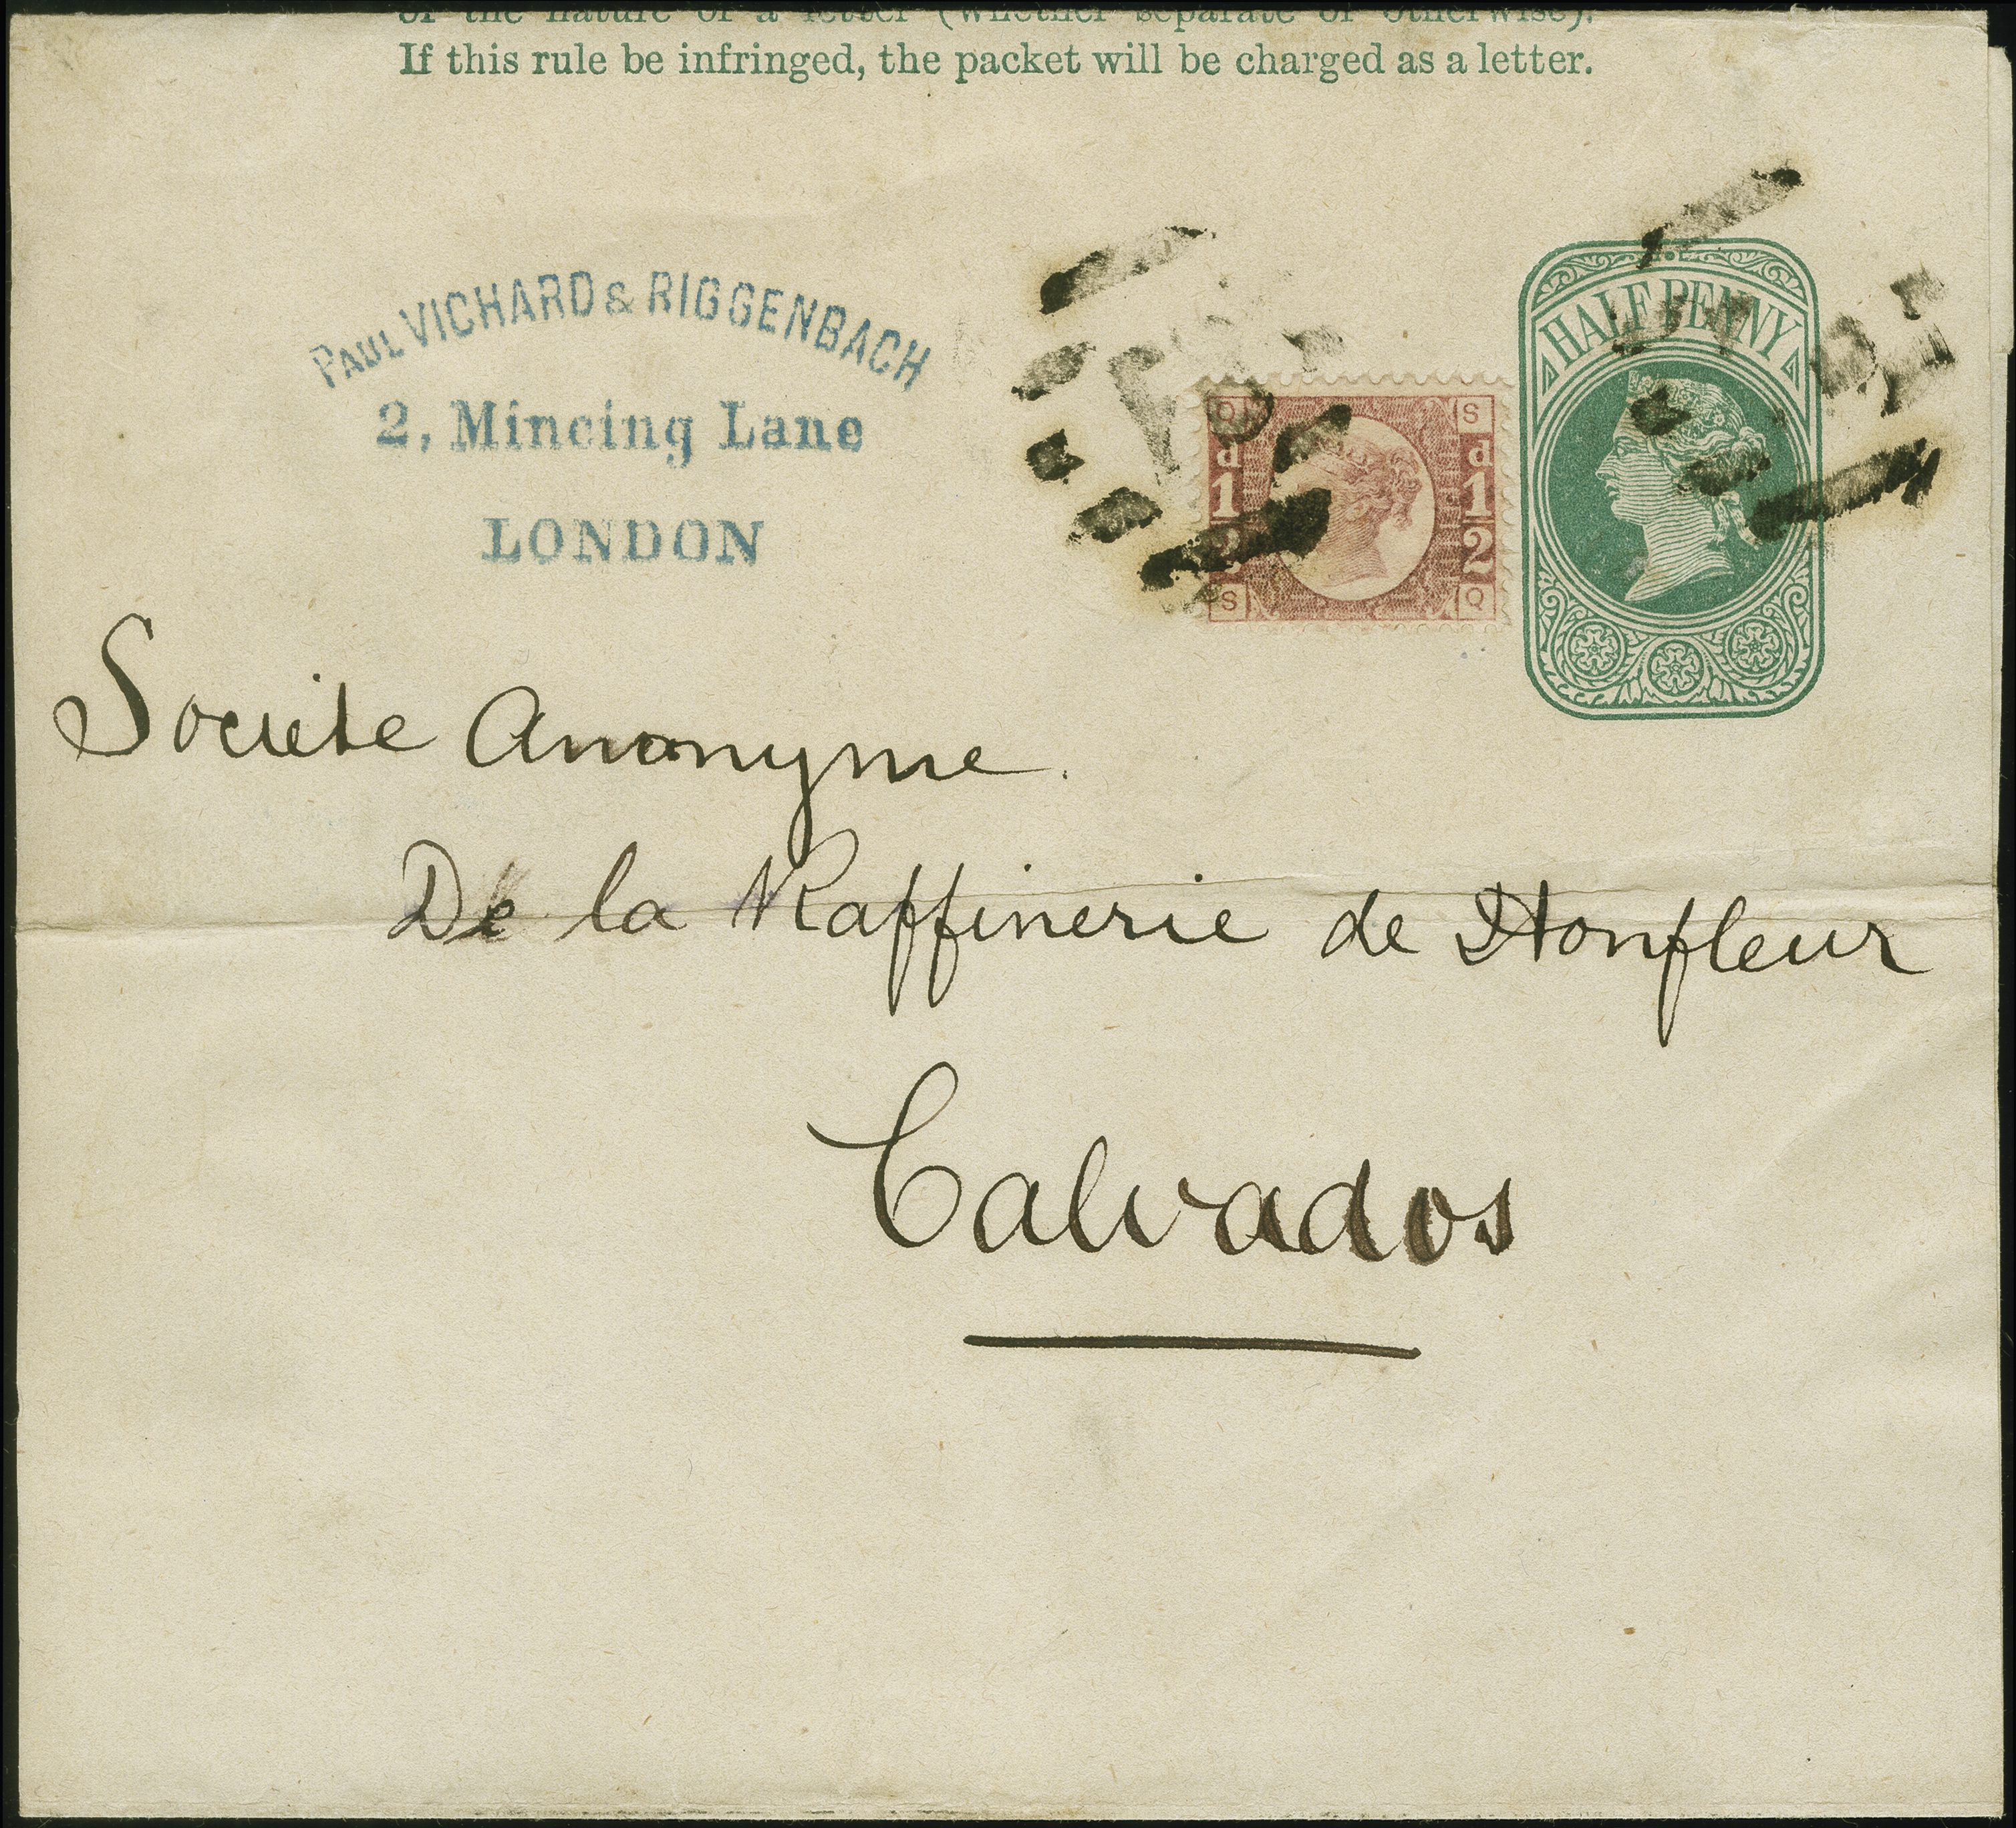 of the nature of a letter (whether separate or otherwise).
If this rule be infringed, the packet will be charged as a letter.
PAUL VICHARD & RIGGENBACH
2, Mincing Lane
LONDON
Q S
d d
1 1
2 2
S Q
HALFPENNY
Societe Anonyme.
De la Raffinerie de Honfleur
Calvados